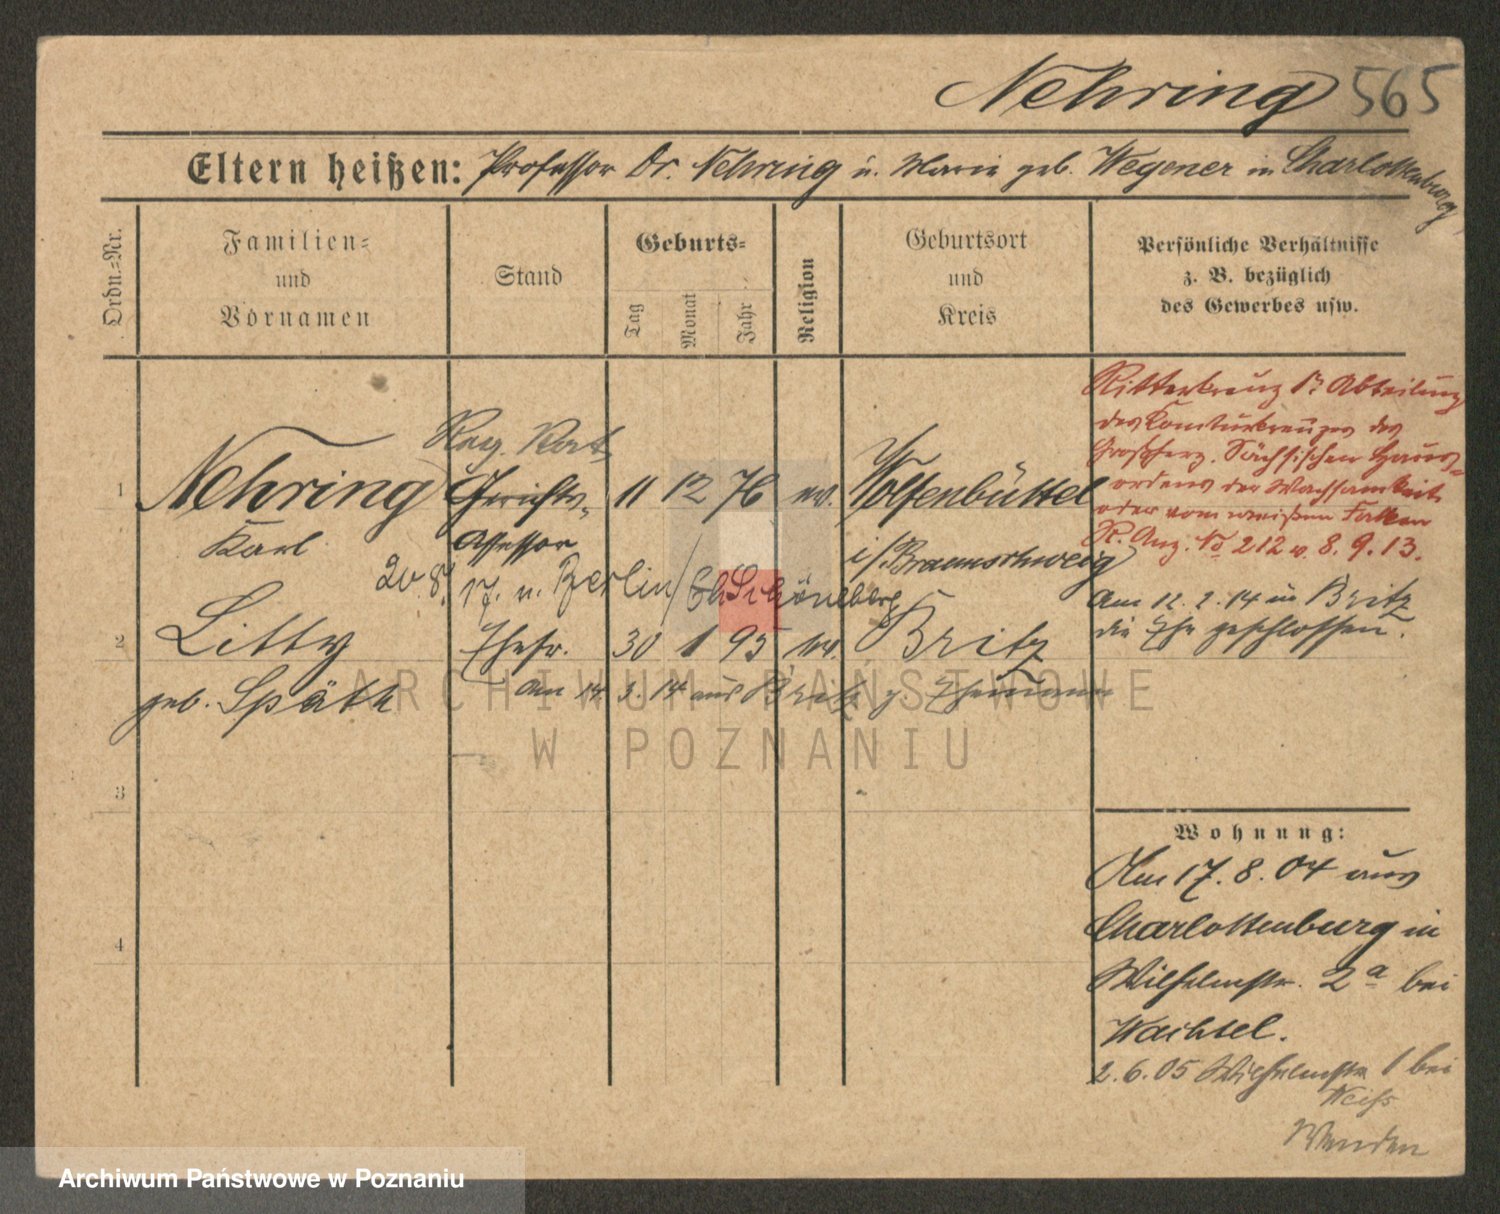 Nehring 565
Eltern heißen: Professor Dr. Nehring u. Marie geb. Wegener in Charlottenburg
Ordn.-Nr.
Familien-
und
Vornamen
Stand
Geburts-
Tag
Monat
Jahr
Religion
Geburtsort
und
Kreis
Persönliche Verhältnisse
z. B. bezüglich
des Gewerbes usw.
Reg. Rat
1 Nehring Gerichts- 11 12 76 ev. Wolfenbüttel
Karl Assessor i/Braunschweig
20.8. 17. n. Berlin/Schöneberg
2 Litty Ehefr. 30 1 95 ev. Britz
geb. Späth Am 14. 3. 14 aus Britz z. Ehemann
3
4
Ritterkreuz 1. Abteilung
des Komturkreuzes des
Großherz. Sächsischen Haus-
ordens der Wachsamkeit
oder vom weißen Falken
R. Anz. No 212 v. 8. 9. 13.
Am 12. 2. 14 in Britz
die Ehe geschlossen.
Wohnung:
Am 17. 8. 04 aus
Charlottenburg in
Wilhelmstr. 2a bei
Wachtel.
2. 6. 05 Wilhelmstr. 1 bei
Weiß
Wenden
ARCHIWUM PAŃSTWOWE
W POZNANIU
Archiwum Państwowe w Poznaniu